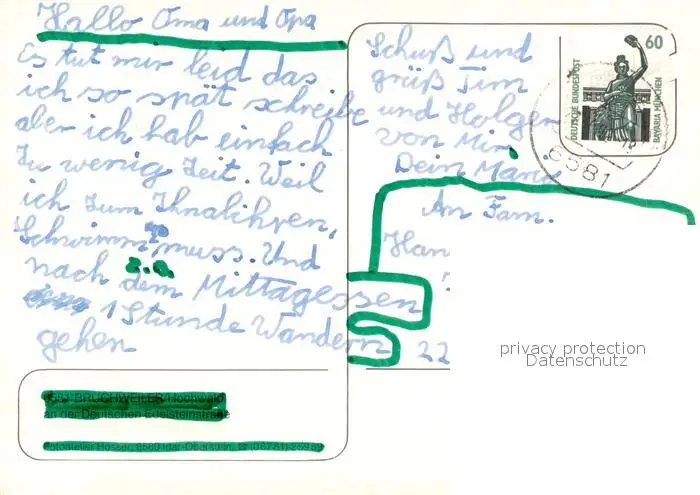 Hallo Oma und Opa
Es tut mir leid das
ich so spät schreibe
aber ich hab einfach
Zu wenig Zeit. Weil
ich zum Ihnalihren,
Schwimm muss. Und
z.a.
nach dem Mittagessen
1 Stunde Wandern
gehen
Schuß und
grüß Tim
und Holger
von Mir.
Dein
An Fam.
Han
22
60
DEUTSCHE BUNDESPOST
BAVARIA MÜNCHEN
6581
privacy protection
Datenschutz
6581 BRUCHWEILER/Hochwald
an der Deutschen Edelsteinstraße
Fotoatelier Hosser, 6580 Idar-Oberstein,